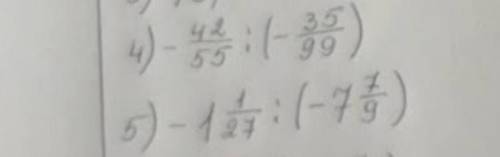 4) - 42/55 : (- 35/99)
5) - 1 1/27 : (- 7 7/9)